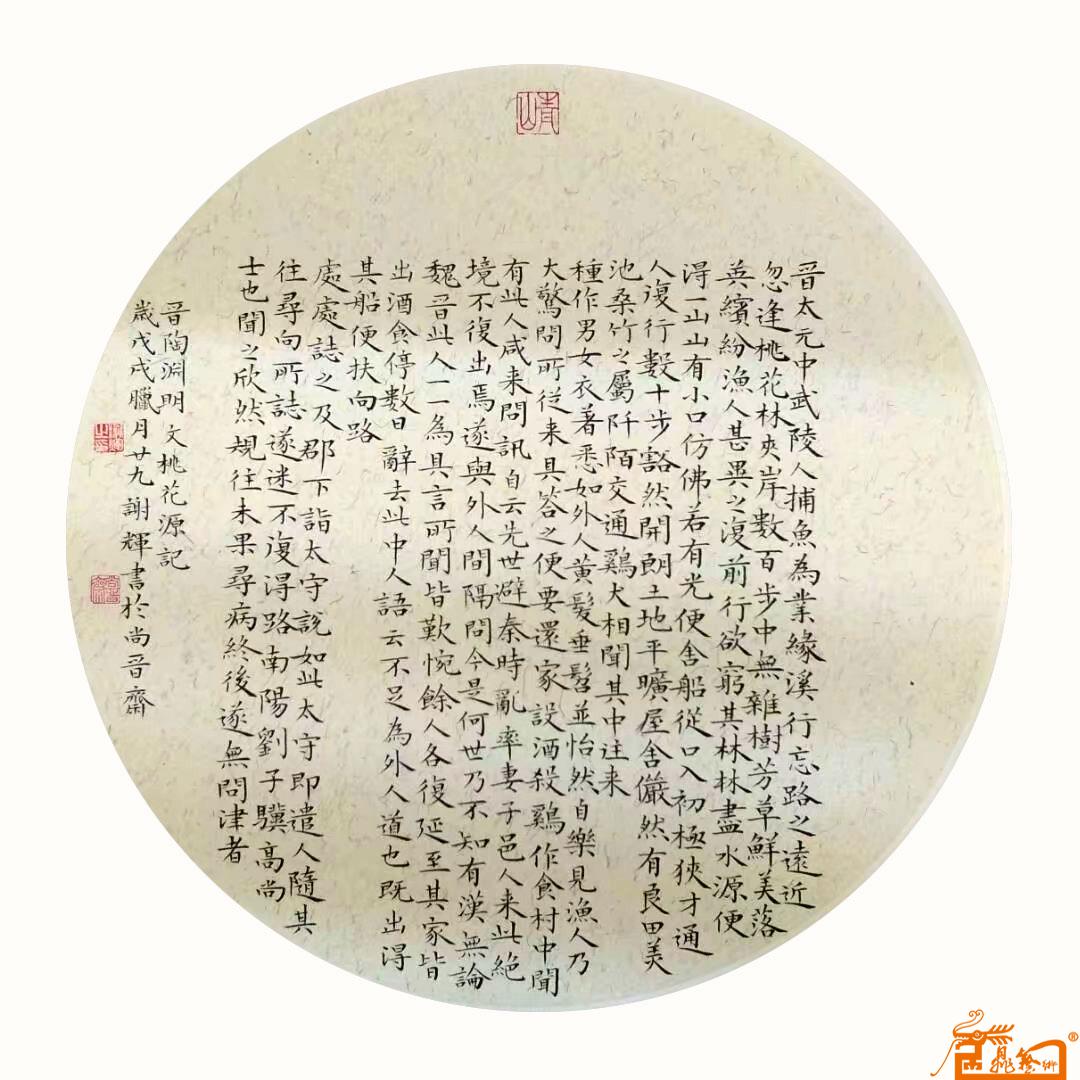 晉太元中武陵人捕魚為業緣溪行忘路之遠近
忽逢桃花林夾岸數百步中無雜樹芳草鮮美落
英繽紛漁人甚異之復前行欲窮其林林盡水源便
得一山山有小口仿佛若有光便舍船從口入初極狹才通
人復行數十步豁然開朗土地平曠屋舍儼然有良田美
池桑竹之屬阡陌交通鷄犬相聞其中往来
種作男女衣著悉如外人黃髮垂髫並怡然自樂見漁人乃
大驚問所從来具答之便要還家設酒殺鷄作食村中聞
有此人咸来問訊自云先世避秦時亂率妻子邑人来此絕
境不復出焉遂與外人間隔問今是何世乃不知有漢無論
魏晉此人一一為具言所聞皆歎惋餘人各復延至其家皆
出酒食停數日辭去此中人語云不足為外人道也既出得
其船便扶向路
處處誌之及郡下詣太守說如此太守即遣人隨其
往尋向所誌遂迷不復得路南陽劉子驥高尚
士也聞之欣然規往未果尋病終後遂無問津者
晉陶淵明文桃花源記
歲戊戌臘月廿九謝輝書於尚晉齋